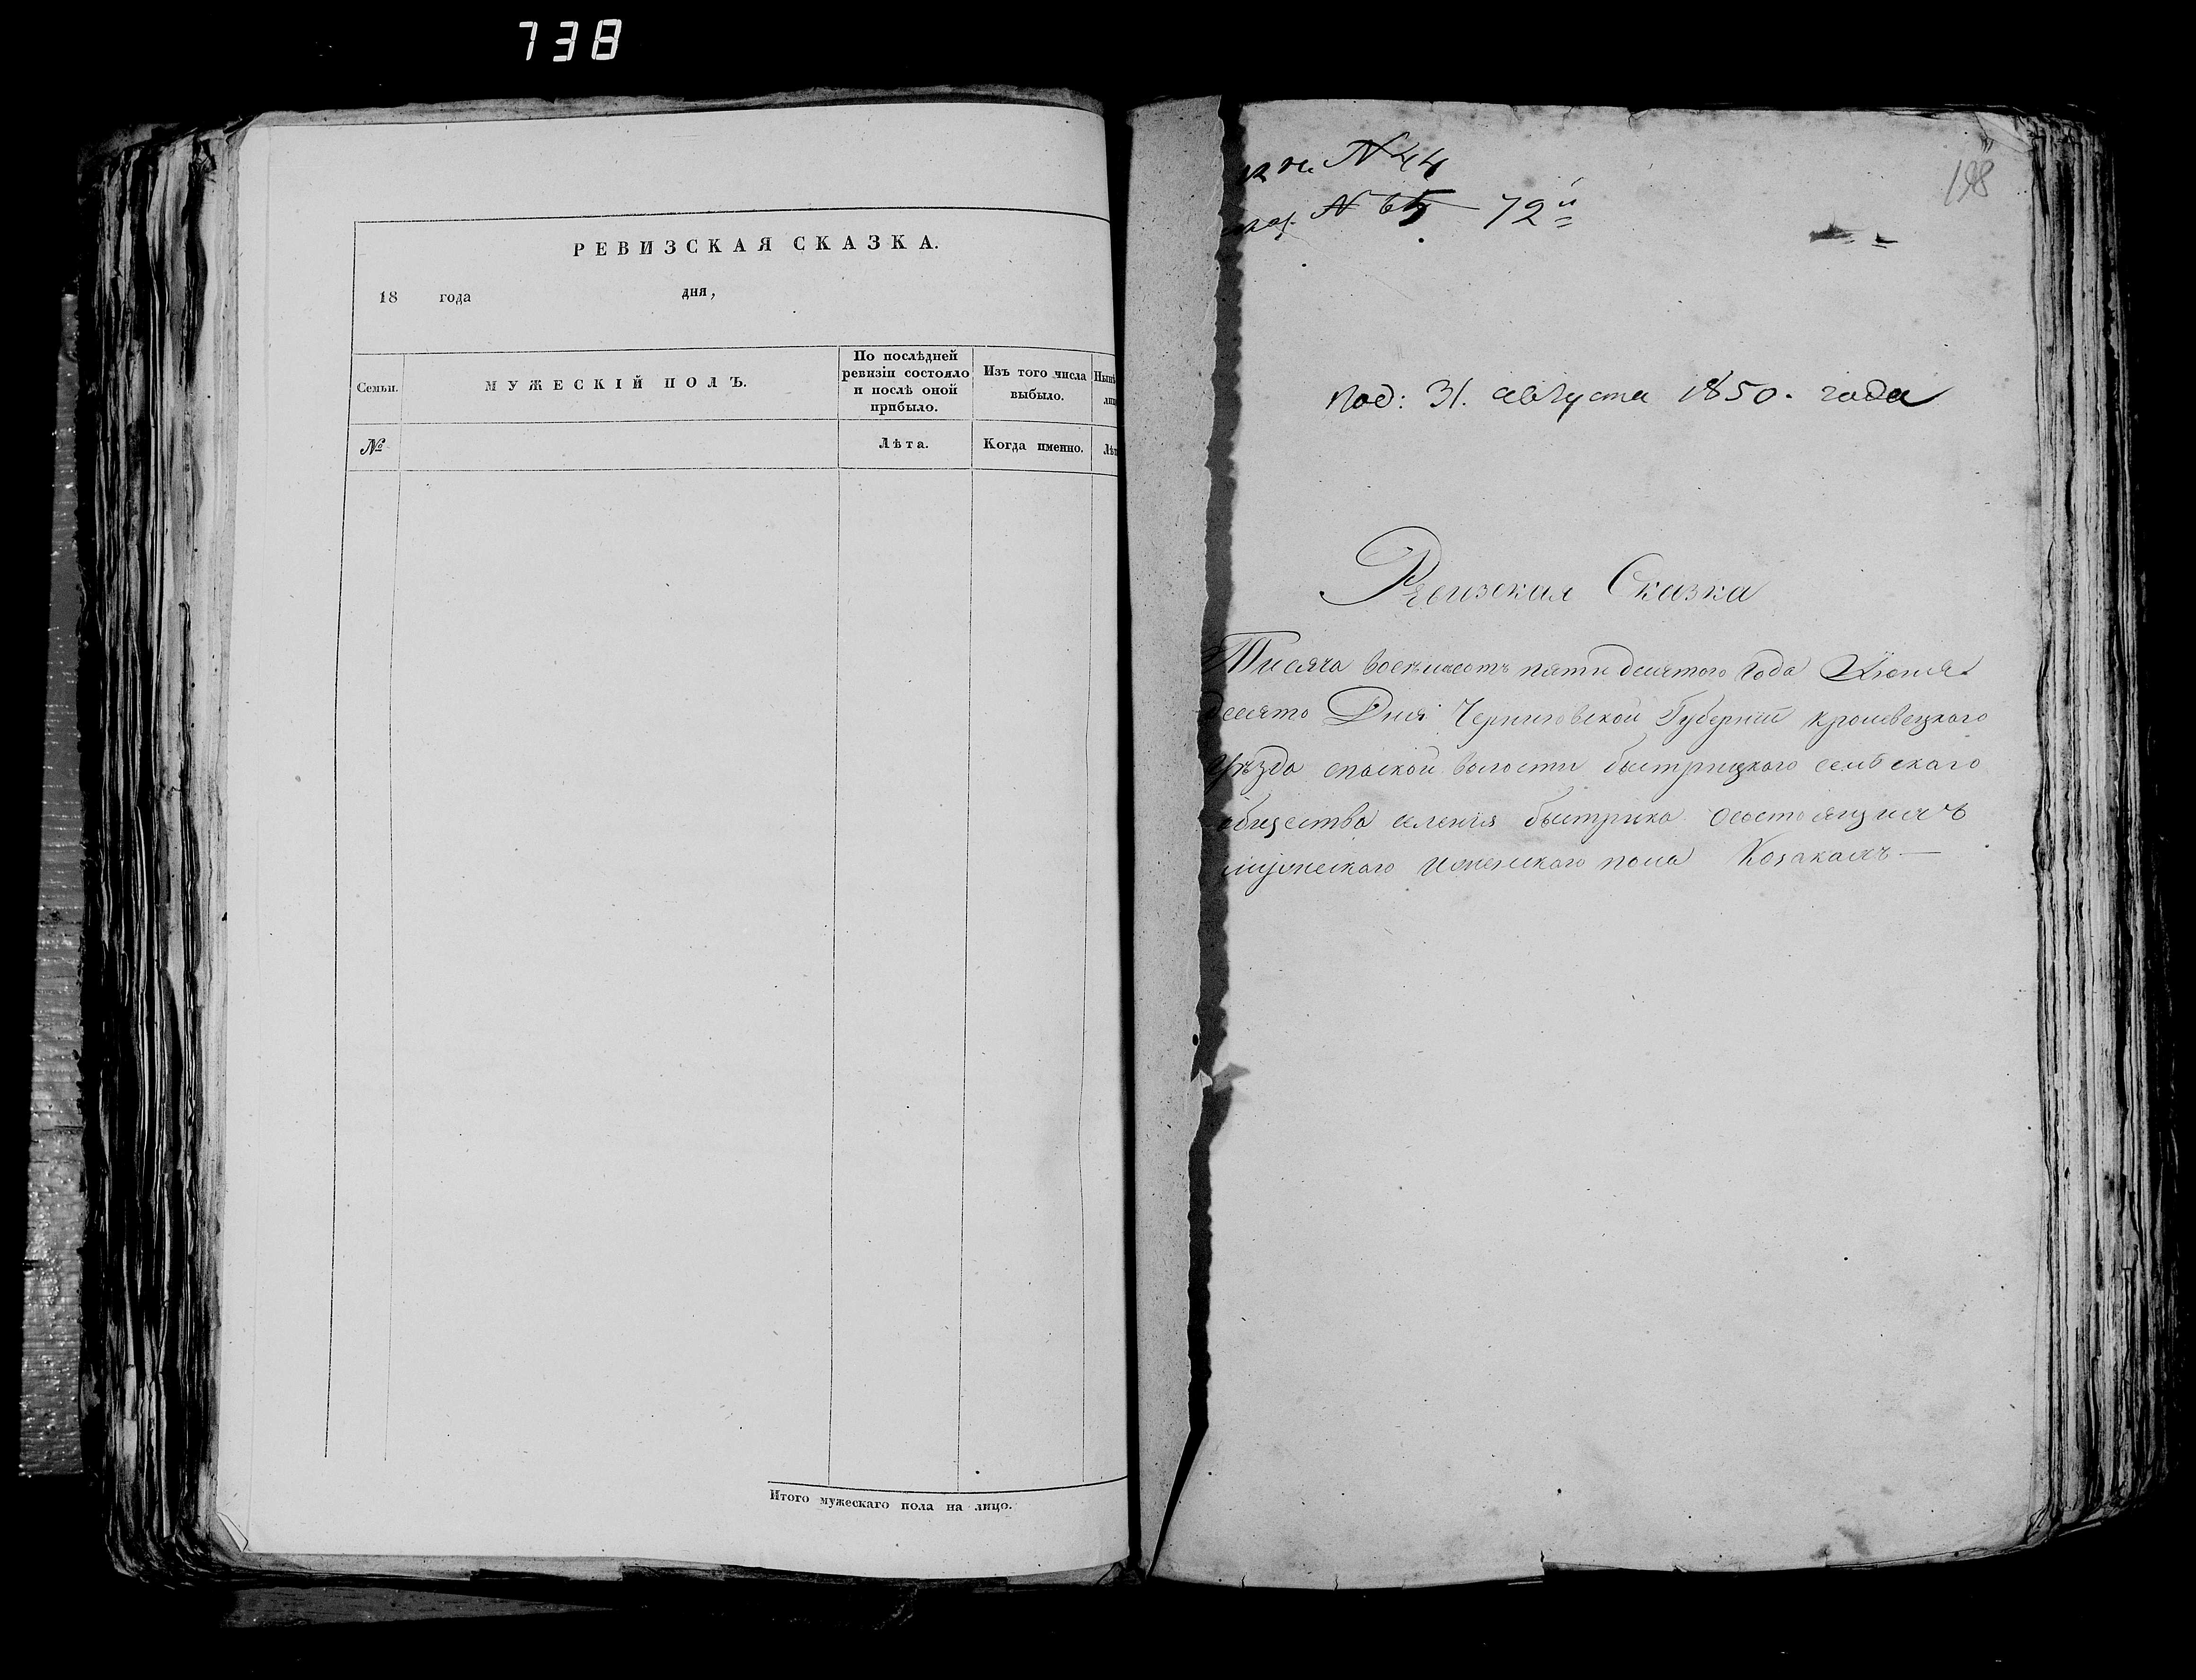 738
РЕВИЗСКАЯ СКАЗКА.
18 года дня,
Семьи.
МУЖЕСКІЙ ПОЛЪ.
По послѣдней
ревизіи состояло
и послѣ оной
прибыло.
Изъ того числа
выбыло.
№
Лѣта.
Когда именно.
Итого мужескаго пола на лицо.
N 44
N 65 72й
198
Под: 31. августа 1850. года
Ревизская Сказка
Тисяча восемъсотъ пятидесятого года Июня
десято Дня Черниговской Губерніи кролевецкого
уѣзда спаской волости быстрицкого селскаго
общества селенія быстрика Осостоящихъ
мужеского иженского пола Козакахъ —